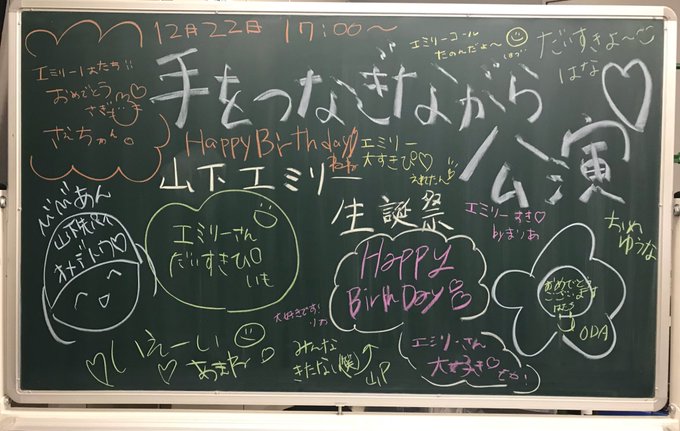 12月22日 17:00～
手をつなぎながら
公演
エミリーコール
たのんだよ～
だいすきよ～
はな
エミリーはたち!!
おめでとう
Happy Birthday
エミリー
大すきぴ♡
山下エミリー
生誕祭
エミリーすき♡
byまりあ
びびあん
エミリーさん
だいすきぴ
いも
Happy
BirthDay
おめでとう
ございます
ODA
大好きです!
りお
いえーい
みんな
きたない
山P
エミリーさん
大好き♡